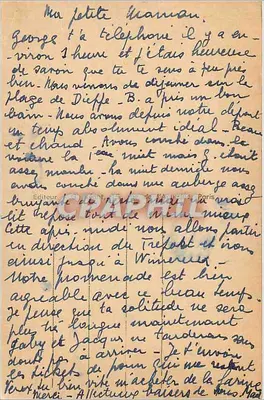 Ma petite Maman.
George t'a téléphoné il y a en-
viron 1 heure et j'étais heureuse
de savoir que tu te sens à peu près
bien. Nous venons de déjeuner sur la
plage de Dieppe - B. a pris un bon
bain. Nous avons depuis notre départ
un temps absolument idéal. Beau
et chaud. Avons couché dans la
voiture la 1ère nuit mais c'était
assez La nuit dernière nous
avons couché dans une auberge assez
bruyante
lit
Cette après-midi nous allons partir
en direction du Tréport et irons
ainsi jusqu'à Wimereux
Notre promenade est bien
agréable avec ce beau temps.
Je pense que ta solitude ne sera
plus longue maintenant
Gaby et Jacques ne tarderont sans
doute pas à arriver - Je t'envoie
les tickets de pain qui me restent
Veux-tu bien vite m'acheter de la farine
Merci - Affectueux baisers de nous